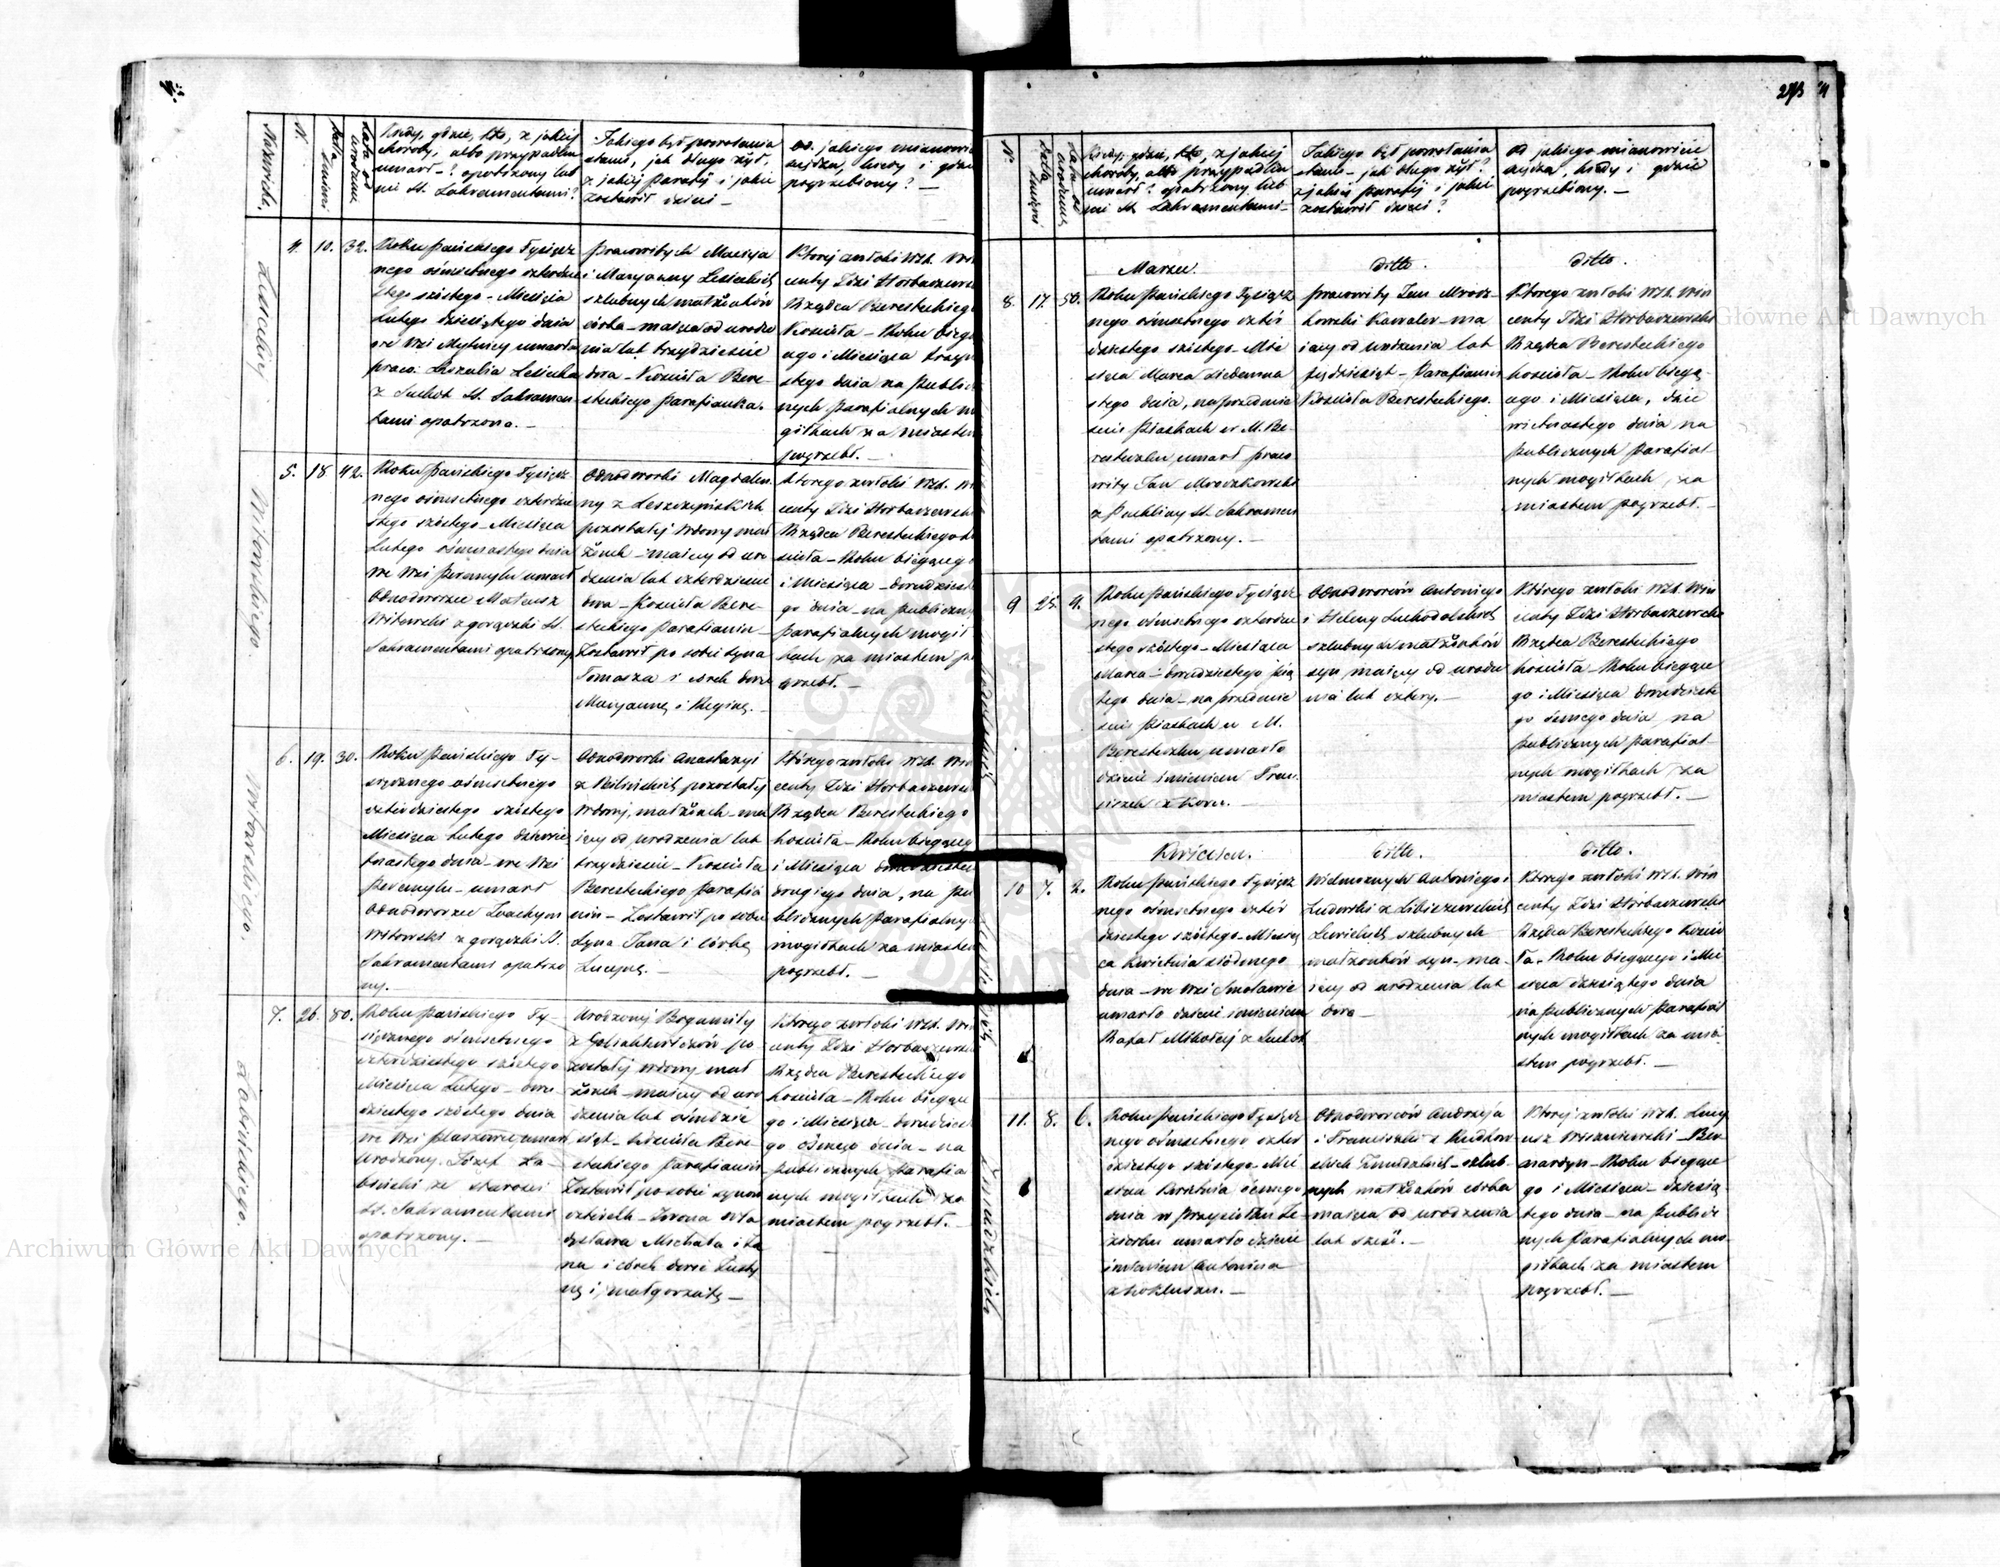 Nazwisko.
N.
Data śmierci
Lata od urodzenia
Kiedy, gdzie, kto, z jakiej
choroby, albo przypadku
umarł? opatrzony lub
nie St. Sakramentami?
Jakiego był powołania
stanu, jak długo żył,
z jakiej Parafij i jakie
zostawił dzieci —
Od jakiego mianowicie
księdza, kiedy i gdzie
pogrzebiony? —
4. 10. 32.
Roku Pańskiego Tysiącz
nego ośmsetnego czterdzie
stego szóstego - Miesiąca
Lutego dziesiątego dnia
we Wsi umarła
praco: Rozalia Lesiecka
z Suchot St. Sakramen
tami opatrzona. —
pracowitych Macieja
i Maryanny Lesieckich
szlubnych małżonków
córka - mająca od urodze
nia lat trzydzieście
dwa - Kościoła Bere-
steckiego Parafianka.
Której zwłoki WX. Win
centy Zożi Horbaczewski
Rządca Beresteckiego
Kościoła - Roku bieżą
cego i Miesiąca trzyna
stego dnia na Public
nych parafialnych mo
giłkach za miastem
pogrzebł. —
Witowskiego.
5. 18 42.
Roku Pańskiego Tysiącz
nego ośmsetnego czterdzie
stego szóstego - Miesiąca
Lutego ośmnastego dnia
we Wsi Peremylu umarł
Odnodworzec Mateusz
Witowski z gorączki St.
Sakramentami opatrzony
Odnodworki Magdale
ny z Leszczyńskich
pozostałej Wdowy mał
żonek - mający od uro
dzenia lat czterdzieście
dwa - Kościoła Bere-
steckiego Parafianin
Zostawił po sobie syna
Tomasza i córek dwie
Maryannę i Reginę. —
Którego zwłoki WX. Win
centy Zożi Horbaczewski
Rządca Beresteckiego Ko
ścioła - Roku bieżącego
i Miesiąca - dwudzieste
go dnia - na publicznych
parafialnych mogił
kach za miastem po
grzebł. —
Witowskiego.
6. 19. 30.
Roku Pańskiego Ty-
siącznego ośmsetnego
czterdziestego szóstego
Miesiąca Lutego dziewię
tnastego dnia - we Wsi
Peremylu - umarł
Odnodworzec Joachym
Witowski z gorączki St.
Sakramentami opatrzo
ny.
Odnodworki Anastazyi
z Bilińskich pozostałej
Wdowy, małżonek - ma
jący od urodzenia lat
trzydzieście - Kościoła
Beresteckiego Parafia
nin - Zostawił po sobie
Syna Jana i córkę
Lucyję. —
Którego zwłoki WX. Win
centy Zożi Horbaczewski
Rządca Beresteckiego
kościoła - Roku bieżącego
i Miesiąca dwudzieste
drugiego dnia, na pu
blicznych Parafialnych
mogiłkach za miastem
pogrzebł. —
Zabińskiego.
7. 26. 80.
Roku Pańskiego Ty-
siącznego ośmsetnego
czterdziestego szóstego
Miesiąca Lutego - dwu
dziestego szóstego dnia
we Wsi Płaszowej umarł
Urodzony Józef Za-
biński ze starości
St. Sakramentami
opatrzony. —
Urodzonej Bogumiły
po
zostałej wdowy mał
żonek - mający od uro
dzenia lat ośmdzie
siąt - kościoła Bere-
steckiego Parafianin
Zostawił po sobie synów
czterech
dysława Michała i Ja
na i córek dwie Justy
nę i Małgorzatę —
Którego zwłoki WX. Win
centy Zożi Horbaczewski
Rządca Beresteckiego
kościoła - Roku bieżące
go i Miesiąca - dwudzieste
go ósmego dnia - na
publicznych parafia
nych mogiłkach za
miastem pogrzebł. —
273
N.
Data śmierci
Lata od urodzenia
Kiedy, gdzie, kto, z jakiej
choroby, albo przypadku
umarł? opatrzony lub
nie St. Sakramentami -
Jakiego był powołania
stanu - jak długo żył?
z jakiej Parafij i jakie
zostawił dzieci?
Od jakiego mianowicie
księdza, kiedy i gdzie
pogrzebiony. —
Marzec.
ditto.
ditto.
8. 17. 50.
Roku Pańskiego Tysiącz
nego ośmsetnego czter
dziestego szóstego - Mie
siąca Marca siedemna
stego dnia, na przedmie
ściu Piaskach w M. Be-
resteczku, umarł praco
wity Jan Mroczkowski
z Puchliny St. Sakramen
tami opatrzony. —
pracowity Jan Mrocz-
kowski Kawaler - ma
jący od urodzenia lat
pięćdziesiąt - Parafianin
Kościoła Beresteckiego.
Którego zwłoki WX. Win
centy Zożi Horbaczewski
Rządca Beresteckiego
kościoła - Roku bieżą
cego i Miesiąca, dzie
więtnastego dnia na
publicznych Parafial-
nych mogiłkach, za
miastem pogrzebł. —
9 25. 4.
Roku Pańskiego Tysiącz
nego ośmsetnego czterdzie
stego szóstego - Miesiąca
Marca - dwudziestego pią
tego dnia - na przedmie
ściu Piaskach w M.
Beresteczku, umarło
dziecie imieniem Fran
ciszek z Koru. —
Odnodworców Antoniego
i Heleny Suchodolskich
szlubnych małżonków
syn mający od urodze
nia lat cztery. —
Którego zwłoki WX. Win
centy Zożi Horbaczewski
Rządca Beresteckiego
kościoła - Roku bieżące
go i Miesiąca dwudzieste
go ósmego dnia, na
publicznych Parafial-
nych mogiłkach za
miastem pogrzebł. —
Kwiecień.
ditto.
ditto.
10 7. 2.
Roku Pańskiego Tysiącz
nego ośmsetnego czter
dziestego szóstego - Miesią
ca Kwietnia siódmego
dnia - we Wsi Smolawie
umarło dziecie imieniem
Rafał Mikołaj z suchot
Wielmożnych Antoniego i
Ludwiki z Libiszewskich
szlubnych
małżonków syn - ma-
jący od urodzenia lat
dwa —
Którego zwłoki WX. Win
centy Zożi Horbaczewski
Rządca Beresteckiego Kościo
ła - Roku bieżącego i Mie
siąca dziesiątego dnia
na publicznych Parafial
nych mogiłkach za mia
stem pogrzebł. —
11. 8. 6.
Roku Pańskiego Tysiącz
nego ośmsetnego czter
dziestego szóstego - Mie
siąca Kwietnia ósmego
dnia w Przysiołku
umarło dziecie
imieniem Antonina
z kokluszu. —
Odnodworców Andrzeja
i Franciszki z
szlub-
nych małżonków córka
mająca od urodzenia
lat sześć. —
Której zwłoki WX. Lucy
usz Wiszniewski - Ber
nardyn - Roku bieżące
go i Miesiąca - dziesią
tego dnia - na publicz
nych Parafialnych mo
giłkach za miastem
pogrzebł. —
Archiwum Główne Akt Dawnych
Główne Akt Dawnych